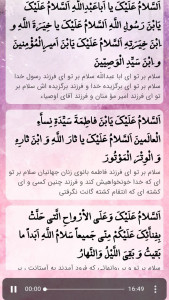 اَلسَّلامُ عَلَيْكَ يا اَباعَبْدِاللهِ اَلسَّلامُ عَلَيْكَ
يَابْنَ رَسُولِ اللهِ اَلسَّلامُ عَلَيْكَ يا خِيَرَةَ اللهِ و
َابْنَ خِيَرَتِهِ اَلسَّلامُ عَلَيْكَ يَابْنَ اَميرِالْمُؤْمِنينَ
و َابْنَ سَيِّدِ الْوَصِيّينَ
سلام بر تو ای ابا عبدالله سلام بر تو ای فرزند رسول خدا
سلام بر تو ای برگزیده خدا و فرزند برگزیده اش سلام بر
تو ای فرزند امیر مؤمنان و فرزند آقای اوصیاء
اَلسَّلامُ عَلَيْكَ يَابْنَ فاطِمَةَ سَيِّدَةِ نِساَّءِ
الْعالَمينَ اَلسَّلامُ عَلَيْكَ يا ثارَ اللهِ و َابْنَ ثارِهِ
و َالْوِتْرَ الْمَوْتُورَ
سلام بر تو ای فرزند فاطمه بانوی زنان جهانیان سلام بر تو
ای که خدا خونخواهیش کند و فرزند چنین کسی و ای
کشته ای که انتقام کشته گانت نگرفتی
اَلسَّلامُ عَلَيْكَ وَعَلَى الاَْرْواحِ الَّتى حَلَّتْ
بِفِناَّئِكَ عَلَيْكُمْ مِنّى جَميعاً سَلامُ اللهِ اَبَداً ما
بَقيتُ وَ بَقِىَ اللَّيْلُ وَالنَّهارُ
سلام بر تو و بر روانهایی که فرود آمدند به آستانت بر
00:00
16:49